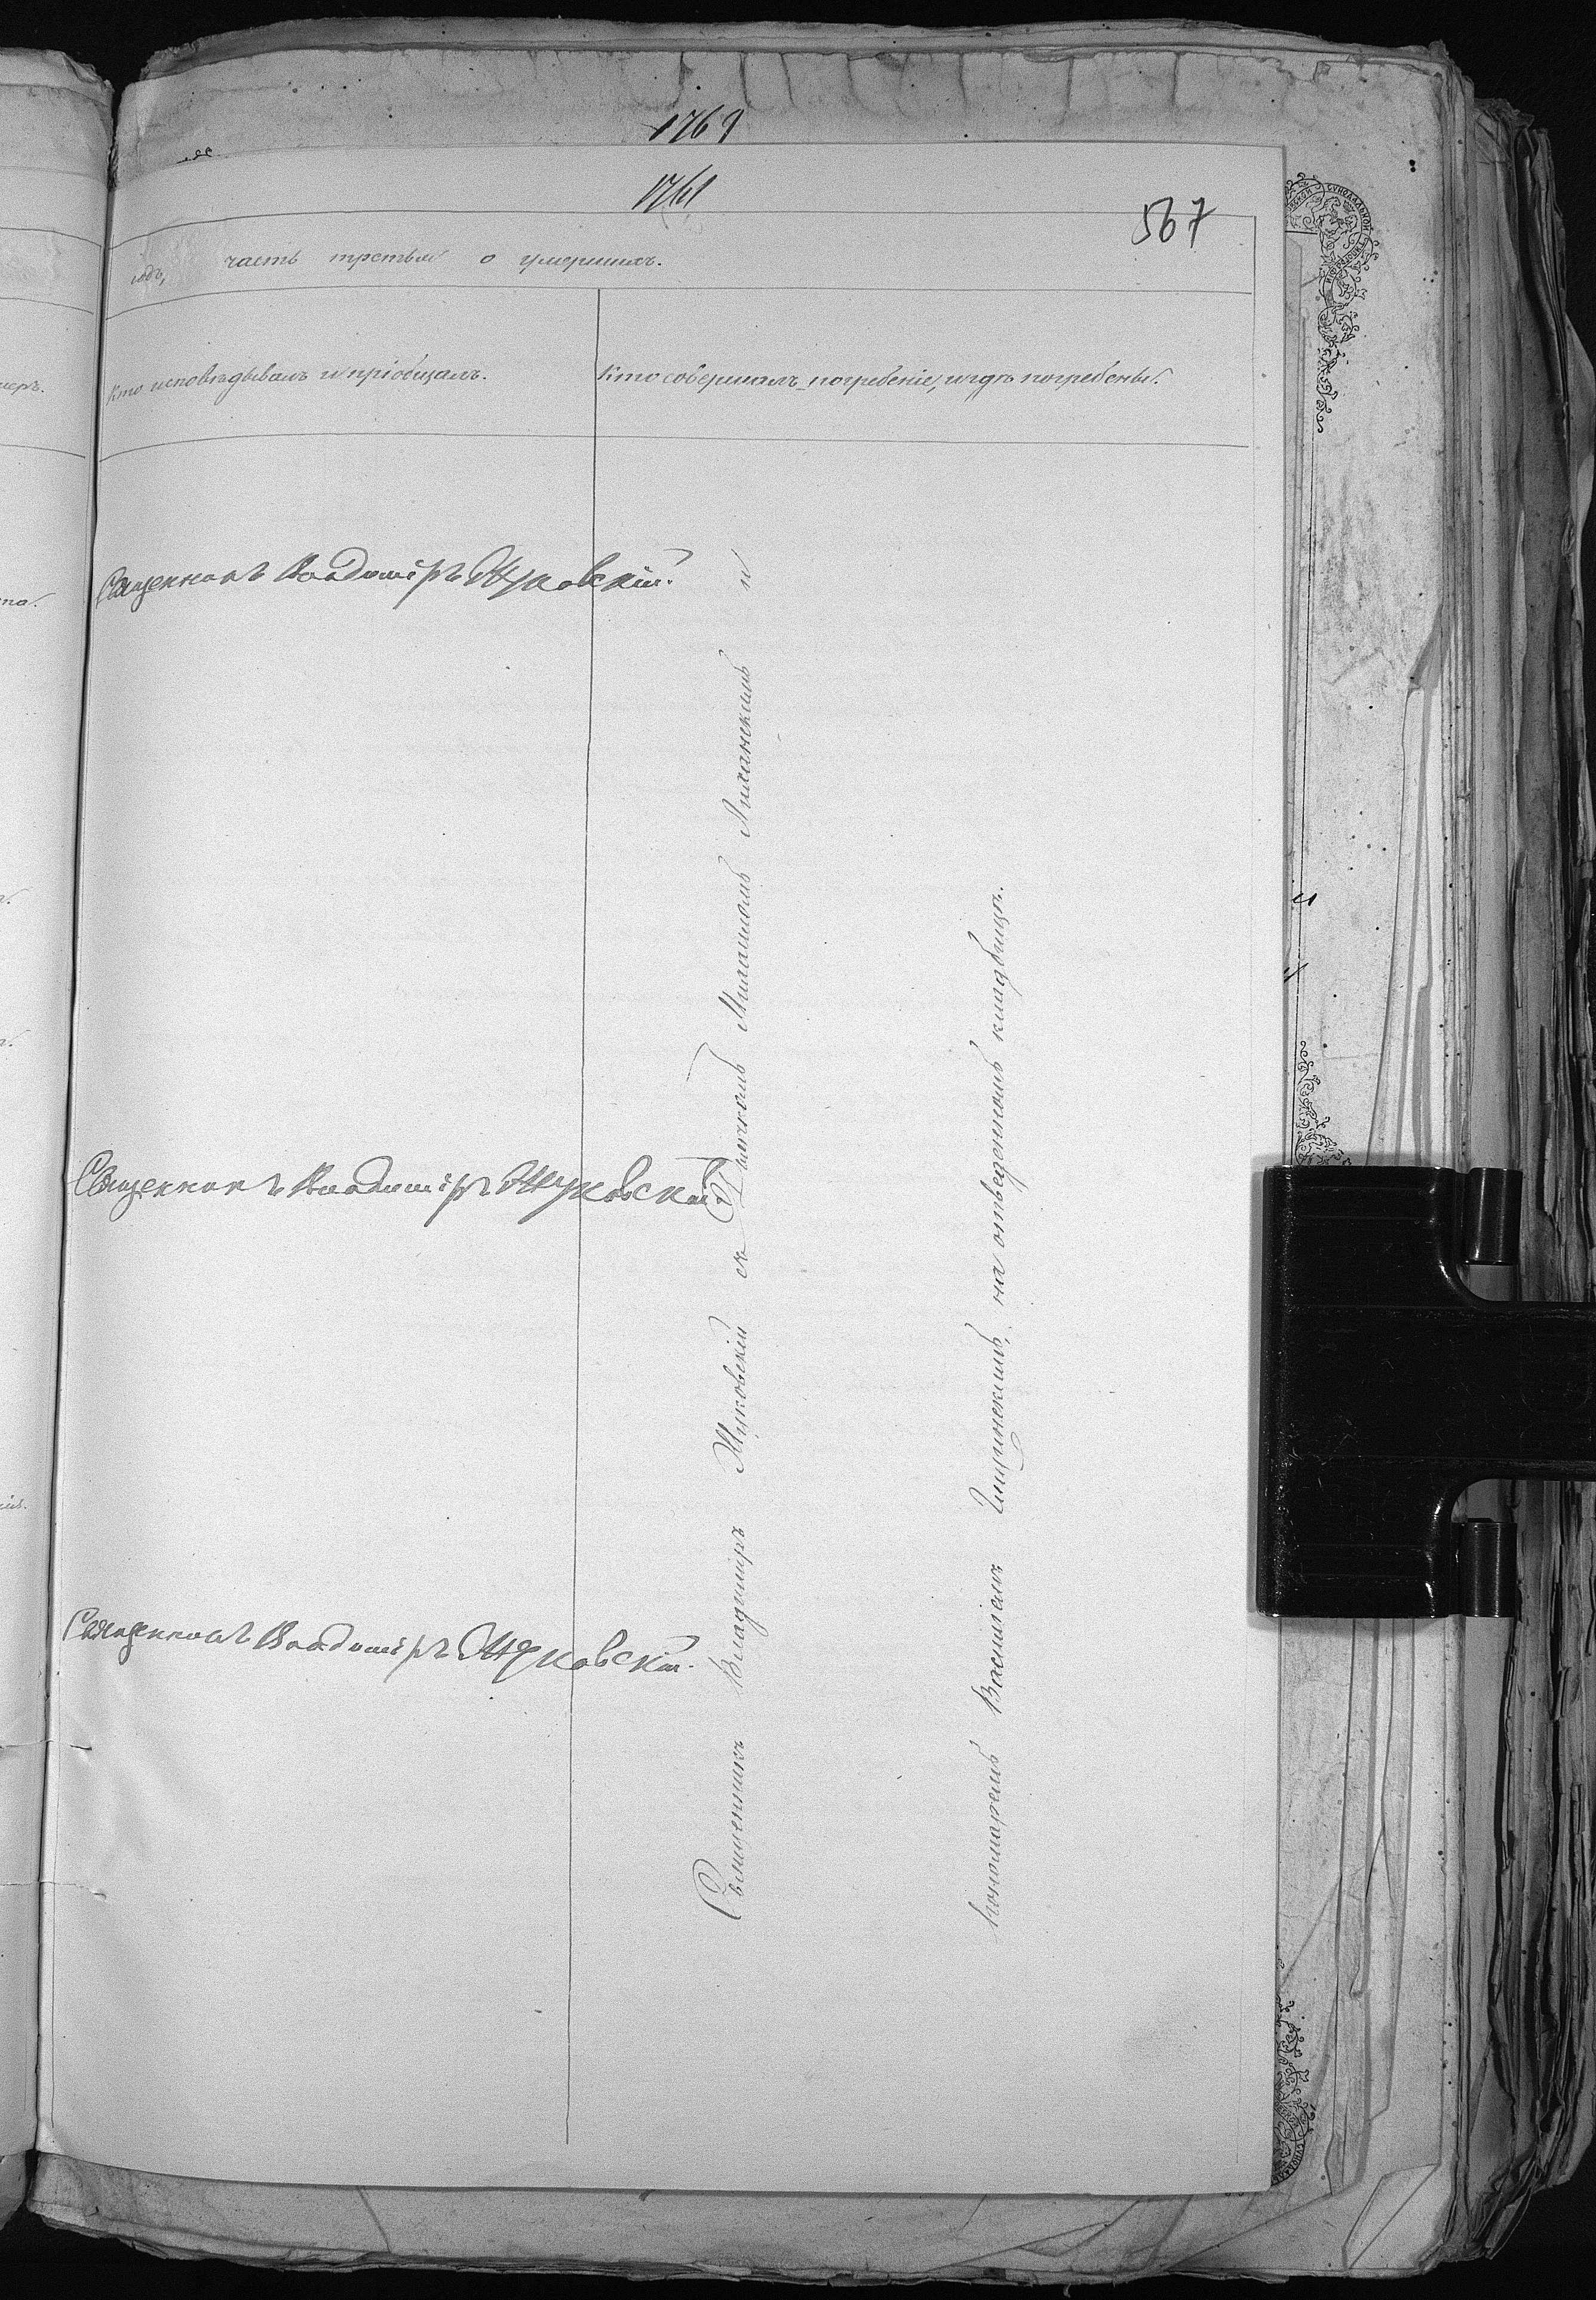 1769
1761
567
годъ, часть третья о умершихъ.
Кто исповѣдывалъ и пріобщалъ.
Кто совершалъ погребеніе, и гдѣ погребены.
Священникъ Владиміръ Жуковскій.
Священникъ Владиміръ Жуковскій
Священникъ Владиміръ Жуковскій.
Священникъ Владимиръ Жуковскій съ Дьячкомъ Михаиломъ и
пономаремъ Василіемъ на отведенномъ кладбищѣ.